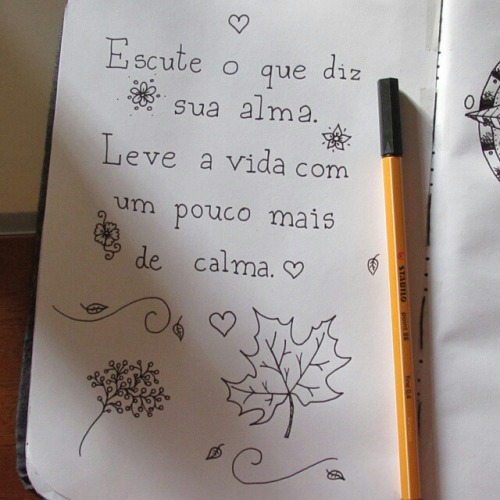 Escute o que diz
sua alma.
Leve a vida com
um pouco mais
de calma.
O
STABILO